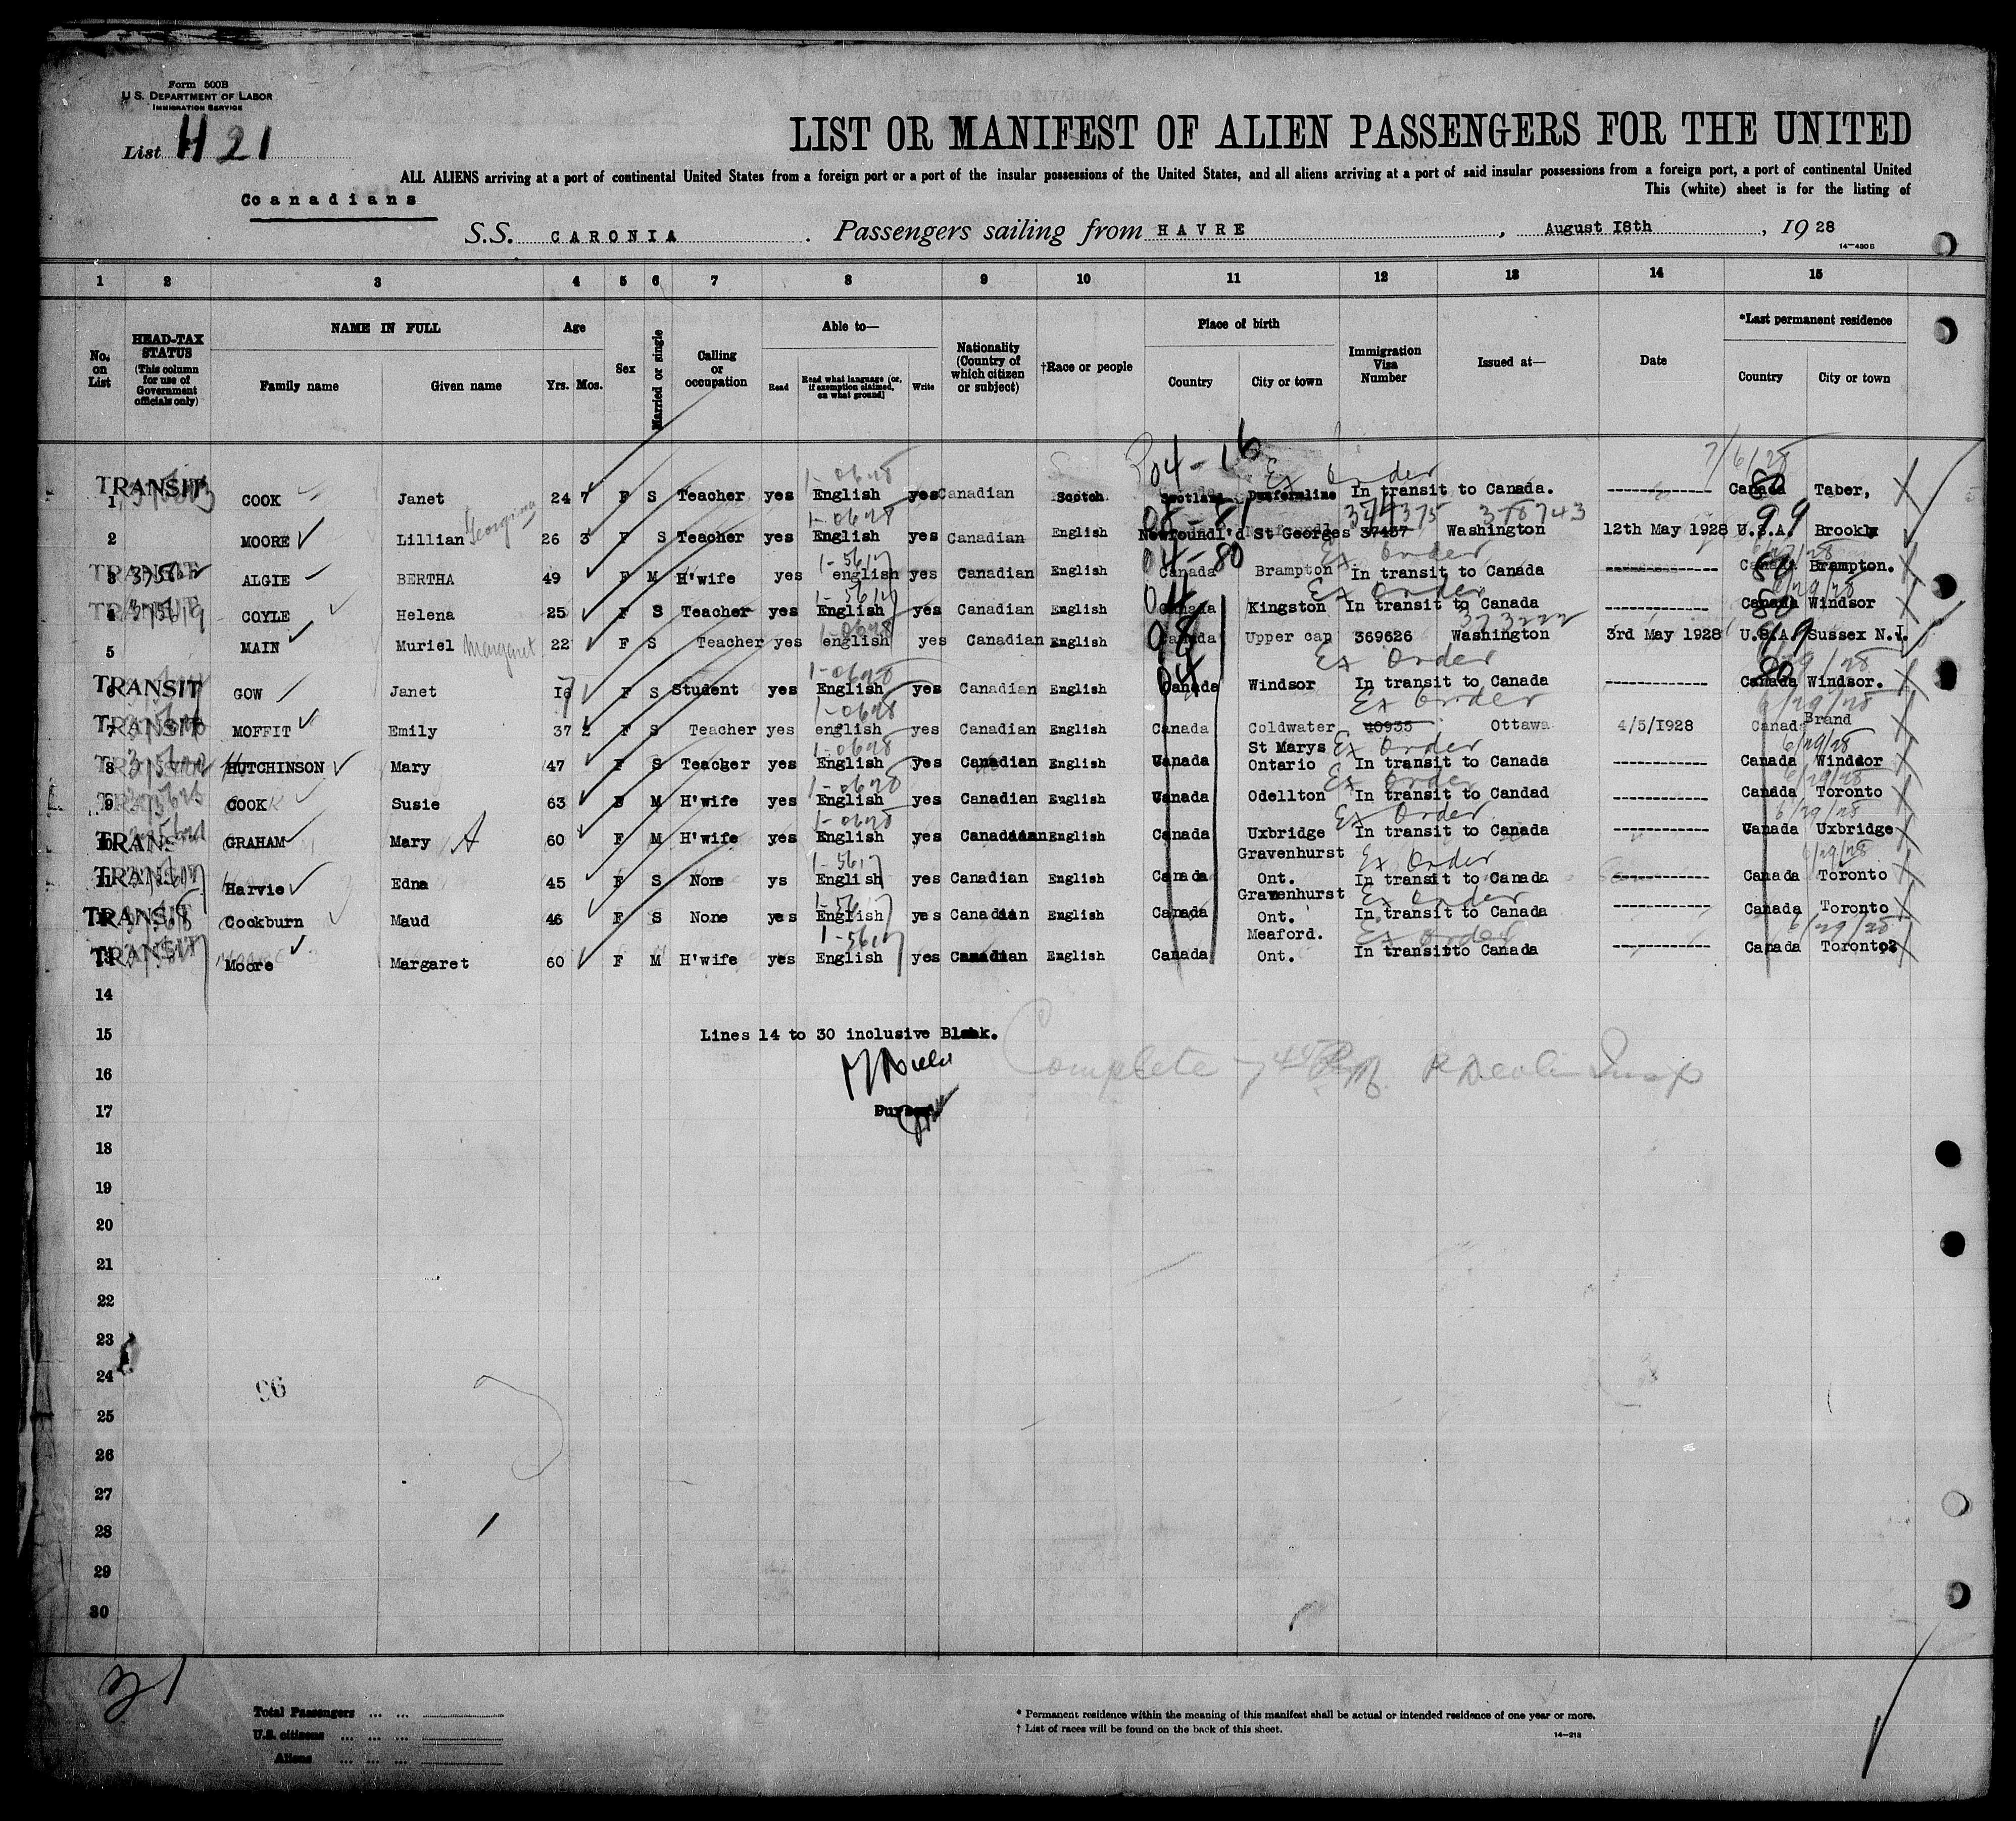 Form 500B
U.S. DEPARTMENT OF LABOR
IMMIGRATION SERVICE
List H 21
LIST OR MANIFEST OF ALIEN PASSENGERS FOR THE UNITED
ALL ALIENS arriving at a port of continental United States from a foreign port or a port of the insular possessions of the United States, and all aliens arriving at a port of said insular possessions from a foreign port, a port of continental United
This (white) sheet is for the listing of
Canadians
S.S. CARONIA. Passengers sailing from HAVRE, August 18th, 1928
14-430B
1 2 3 4 5 6 7 8 9 10 11 12 13 14 15
No. on List
HEAD-TAX STATUS (This column for use of Government officials only)
NAME IN FULL Family name Given name
Age Yrs. Mos.
Sex
Married or single
Calling or occupation
Able to— Read Read what language (or, if exemption claimed, on what ground) Write
Nationality (Country of which citizen or subject)
†Race or people
Place of birth Country City or town
Immigration Visa Number
Issued at—
Date
*Last permanent residence Country City or town
04-16 Ex Order 7/6/28
TRANSIT 1 COOK Janet 24 7 F S Teacher yes English yes Canadian Scotch Scotland Dunfermline In transit to Canada. ------------ Canada Taber,
1-0628 374375 378743 99
2 MOORE Lillian Georgina 26 3 F S Teacher yes English yes Canadian English Newfoundl'd St Georges 37437 Washington 12th May 1928 U.S.A. Brookly
1-5617 04-80 Ex Order
TRANSIT 3 ALGIE BERTHA 49 F M H'wife yes english yes Canadian English Canada Brampton In transit to Canada ------------ Canada Brampton.
1-5617 04 Ex Order 6/29/28
TRANSIT 4 COYLE Helena 25 F S Teacher yes English yes Canadian English Canada Kingston In transit to Canada ------------ Canada Windsor
1-0628 373222 99
5 MAIN Muriel Margaret 22 F S Teacher yes english yes Canadian English Canada Upper cap 369626 Washington 3rd May 1928 U.S.A. Sussex N.J.
1-0628 04 Ex Order 6/29/28
TRANSIT 6 GOW Janet 17 F S Student yes English yes Canadian English Canada Windsor In transit to Canada ------------ Canada Windsor.
1-0628 Ex Order 6/29/28
TRANSIT 7 MOFFIT Emily 37 2 F S Teacher yes english yes Canadian English Canada Coldwater 40935 Ottawa 4/5/1928 Canada Brand
1-0628 St Marys Ex Order 6/29/28
TRANSIT 8 HUTCHINSON Mary 47 F S Teacger yes English yes Canadian English Canada Ontario In transit to Canada ------------ Canada Windsor
1-0628 Ex Order 6/29/28
TRANSIT 9 COOK Susie 63 F M H'wife yes English yes Canadian English Canada Odellton In transit to Candad ------------ Canada Toronto
1-0628 Ex Order 6/29/28
TRANSIT 10 GRAHAM Mary A 60 F M H'wife yes English yes Canadian English Canada Uxbridge In transit to Canada ------------ Canada Uxbridge
1-5617 Gravenhurst Ex Order 6/29/28
TRANSIT 11 Harvie Edna 45 F S None ys English yes Canadian English Canada Ont. In transit to Canada ------------ Canada Toronto
1-5617 Gravenhurst Ex Order
TRANSIT 12 Cockburn Maud 46 F S None yes English yes Canadian English Canada Ont. In transit to Canada ------------ Canada Toronto
1-5617 Meaford. Ex Order 6/29/28
TRANSIT 13 Moore Margaret 60 F M H'wife yes English yes Canadian English Canada Ont. In transit to Canada ------------ Canada Toronto
14
15 Lines 14 to 30 inclusive Blank.
16 Complete
17 Purser.
18
19
20
21
22
23
24
96
25
26
27
28
29
30
21
Total Passengers ... ...
U.S. citizens ... ... ...
Aliens ... ... ...
* Permanent residence within the meaning of this manifest shall be actual or intended residence of one year or more.
† List of races will be found on the back of this sheet.
14-213